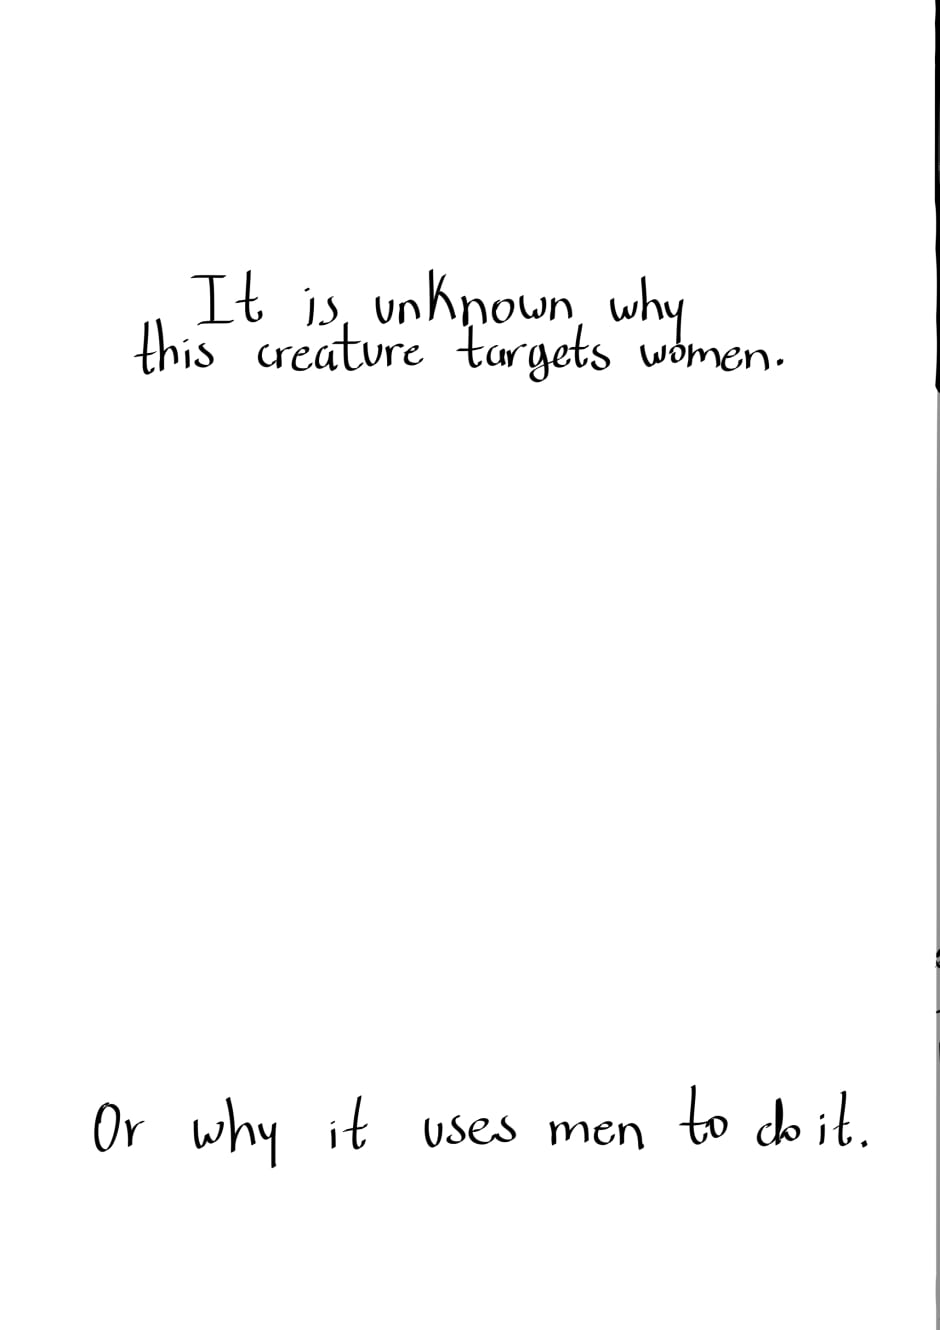 It is unknown why
this creature targets women.
Or why it uses men to do it.